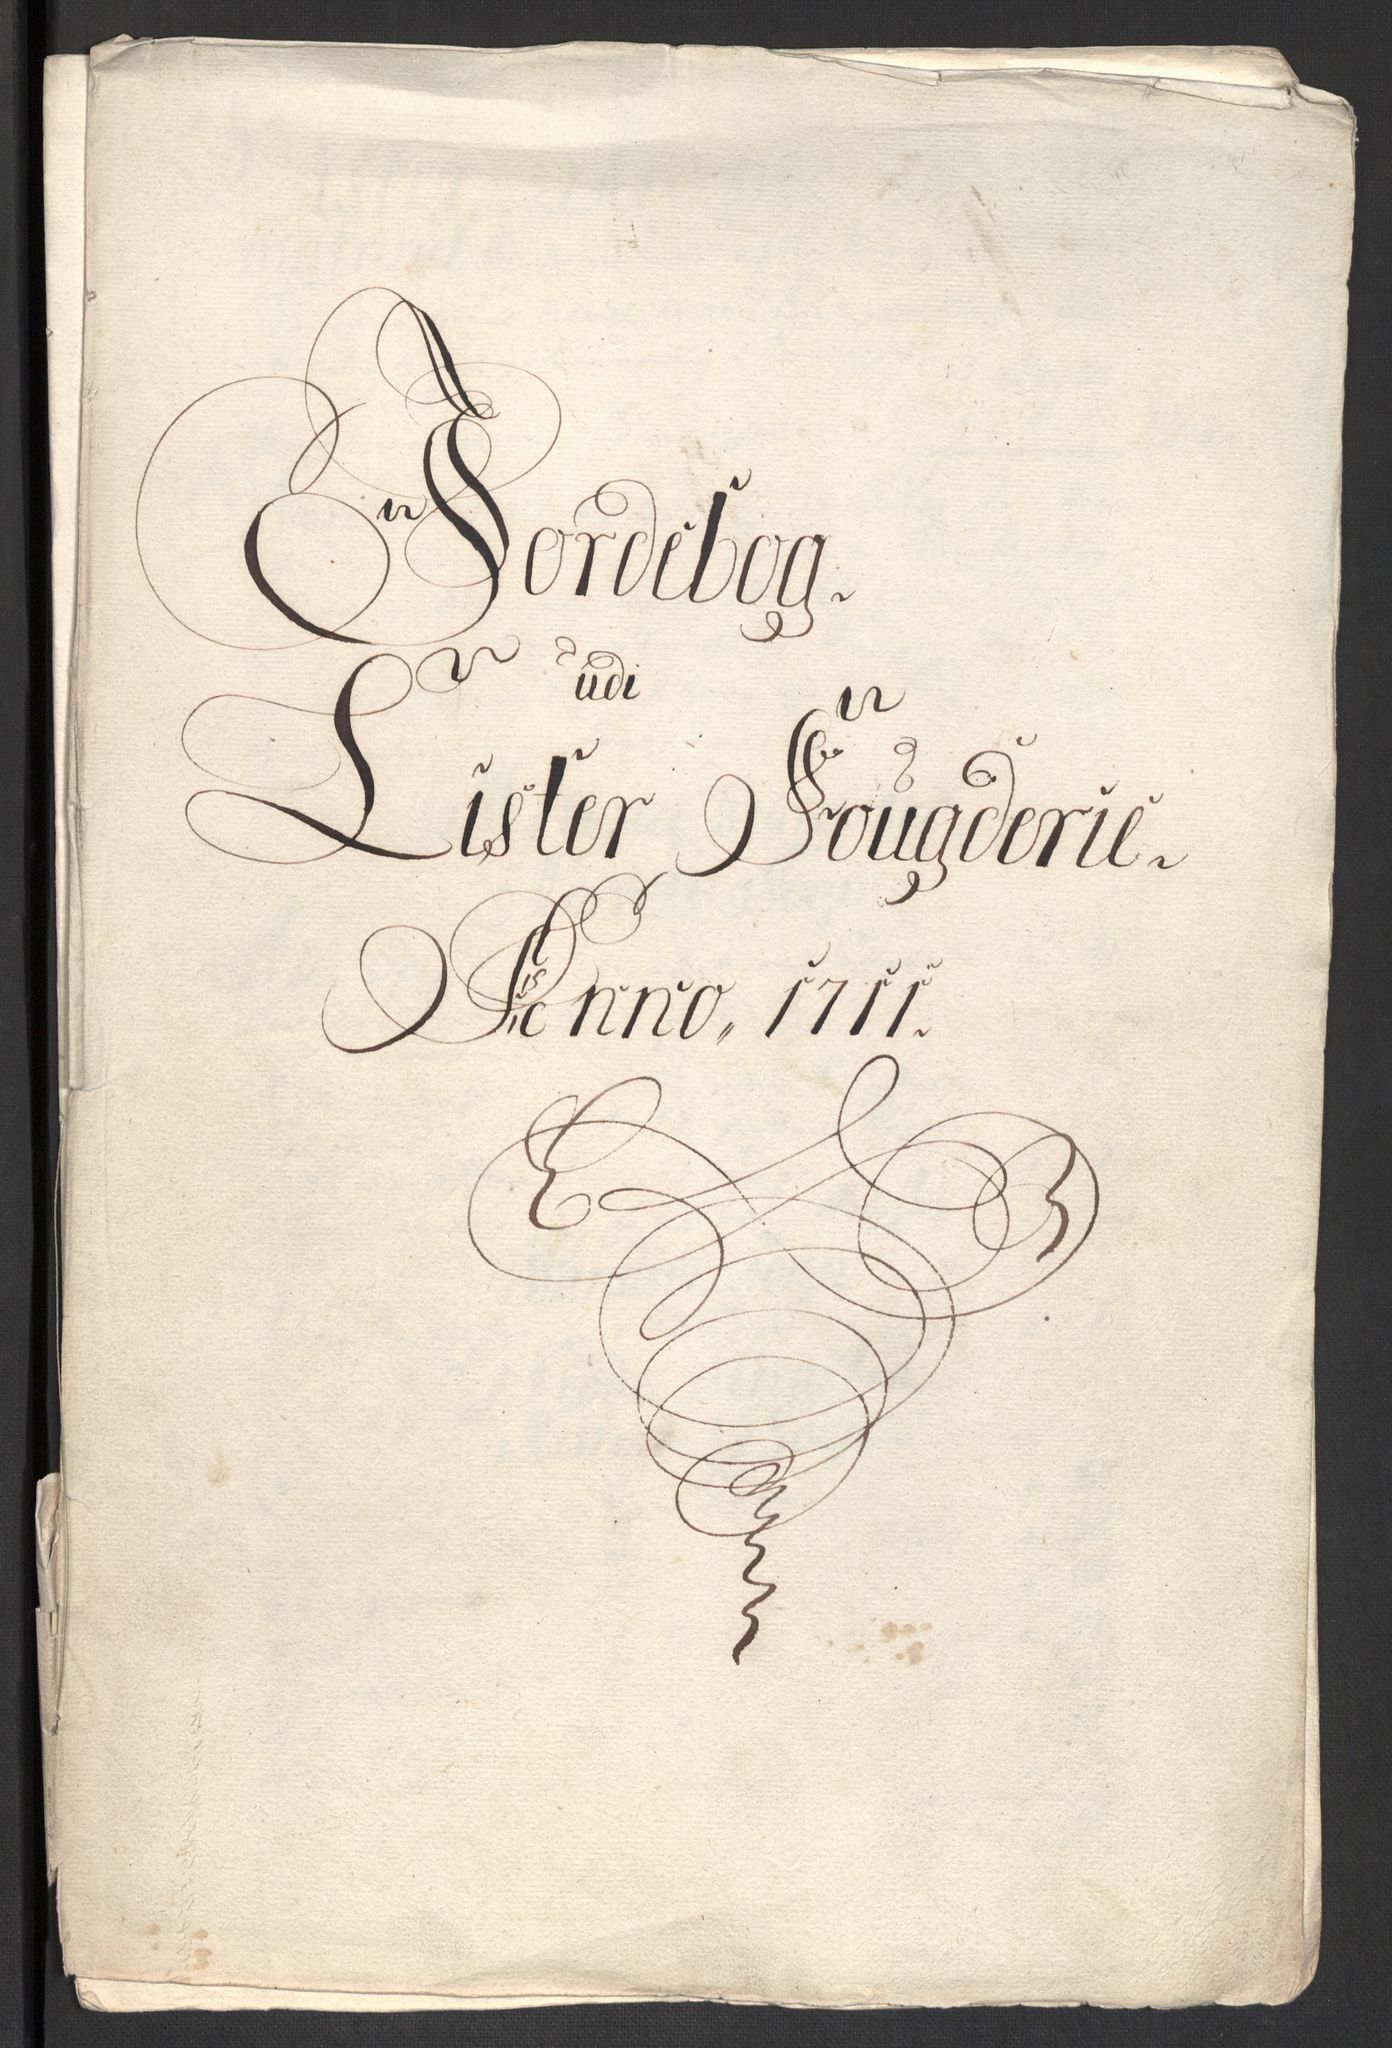 Jordebog.
udi
Lister Fougderie.
Anno, 1711.